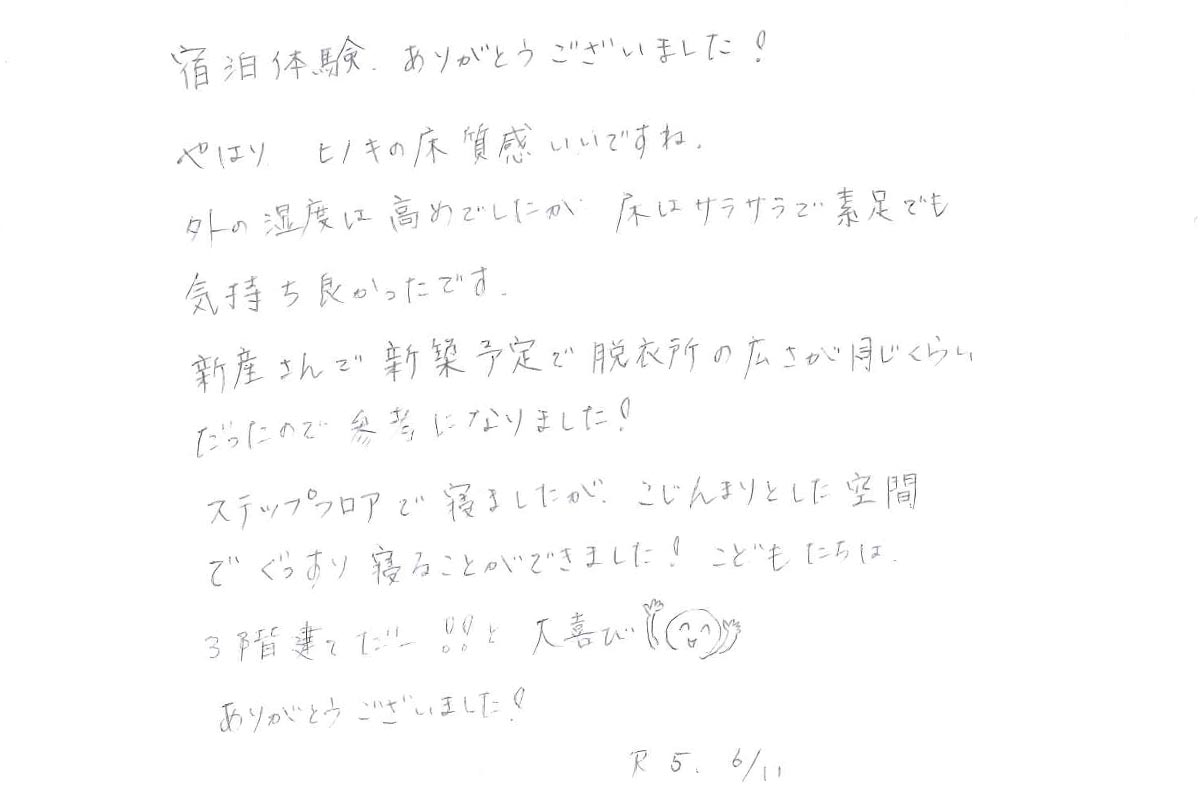 宿泊体験、ありがとうございました!
やはり、ヒノキの床質感いいですね。
外の湿度は高めでしたが、床はサラサラで素足でも
気持ち良かったです。
新産さんで新築予定で脱衣所の広さが同じくらい
だったので参考になりました!
ステップフロアで寝ましたが、こじんまりとした空間
でぐっすり寝ることができました! こどもたちは、
3階建てだー!!と大喜び
ありがとうございました!
R5. 6/11